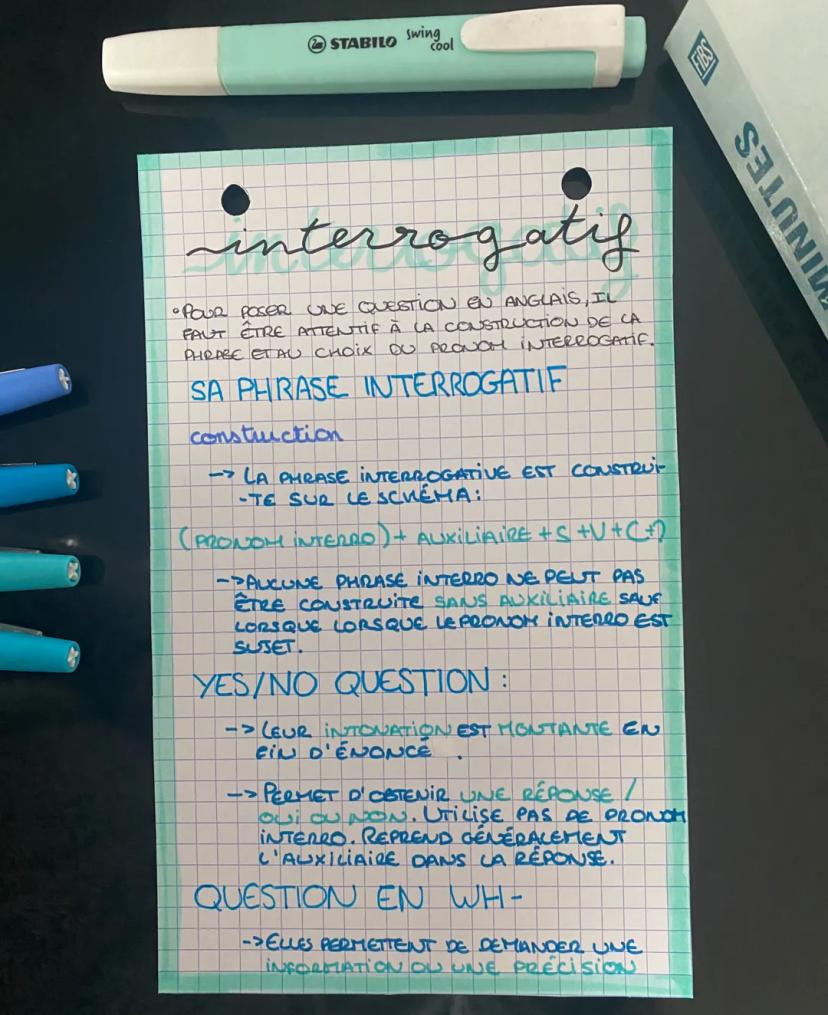 STABILO swing cool
FIBS
MINUTES
interrogatif
• POUR POSER UNE QUESTION EN ANGLAIS, IL
FAUT ÊTRE ATTENTIF À LA CONSTRUCTION DE LA
PHRASE ET AU CHOIX DU PRONOM INTERROGATIF.
SA PHRASE INTERROGATIF
constuction
-> LA PHRASE INTERROGATIVE EST CONSTRUI-
-TE SUR LE SCHÉMA:
(PRONOM INTERRO) + AUXILIAIRE + S + V + C + ?
-> AUCUNE PHRASE INTERRO NE PEUT PAS
ÊTRE CONSTRUITE SANS AUXILIAIRE SAUF
LORSQUE LORSQUE LE PRONOM INTERRO EST
SUJET.
YES/NO QUESTION :
-> LEUR INTONATION EST MONTANTE EN
FIN D'ÉNONCÉ .
-> PERMET D'OBTENIR UNE RÉPONSE /
OUI OU NON. UTILISE PAS DE PRONOM
INTERRO. REPREND GÉNÉRALEMENT
L'AUXILIAIRE DANS LA RÉPONSE.
QUESTION EN WH-
-> ELLES PERMETTENT DE DEMANDER UNE
INFORMATION OU UNE PRÉCISION